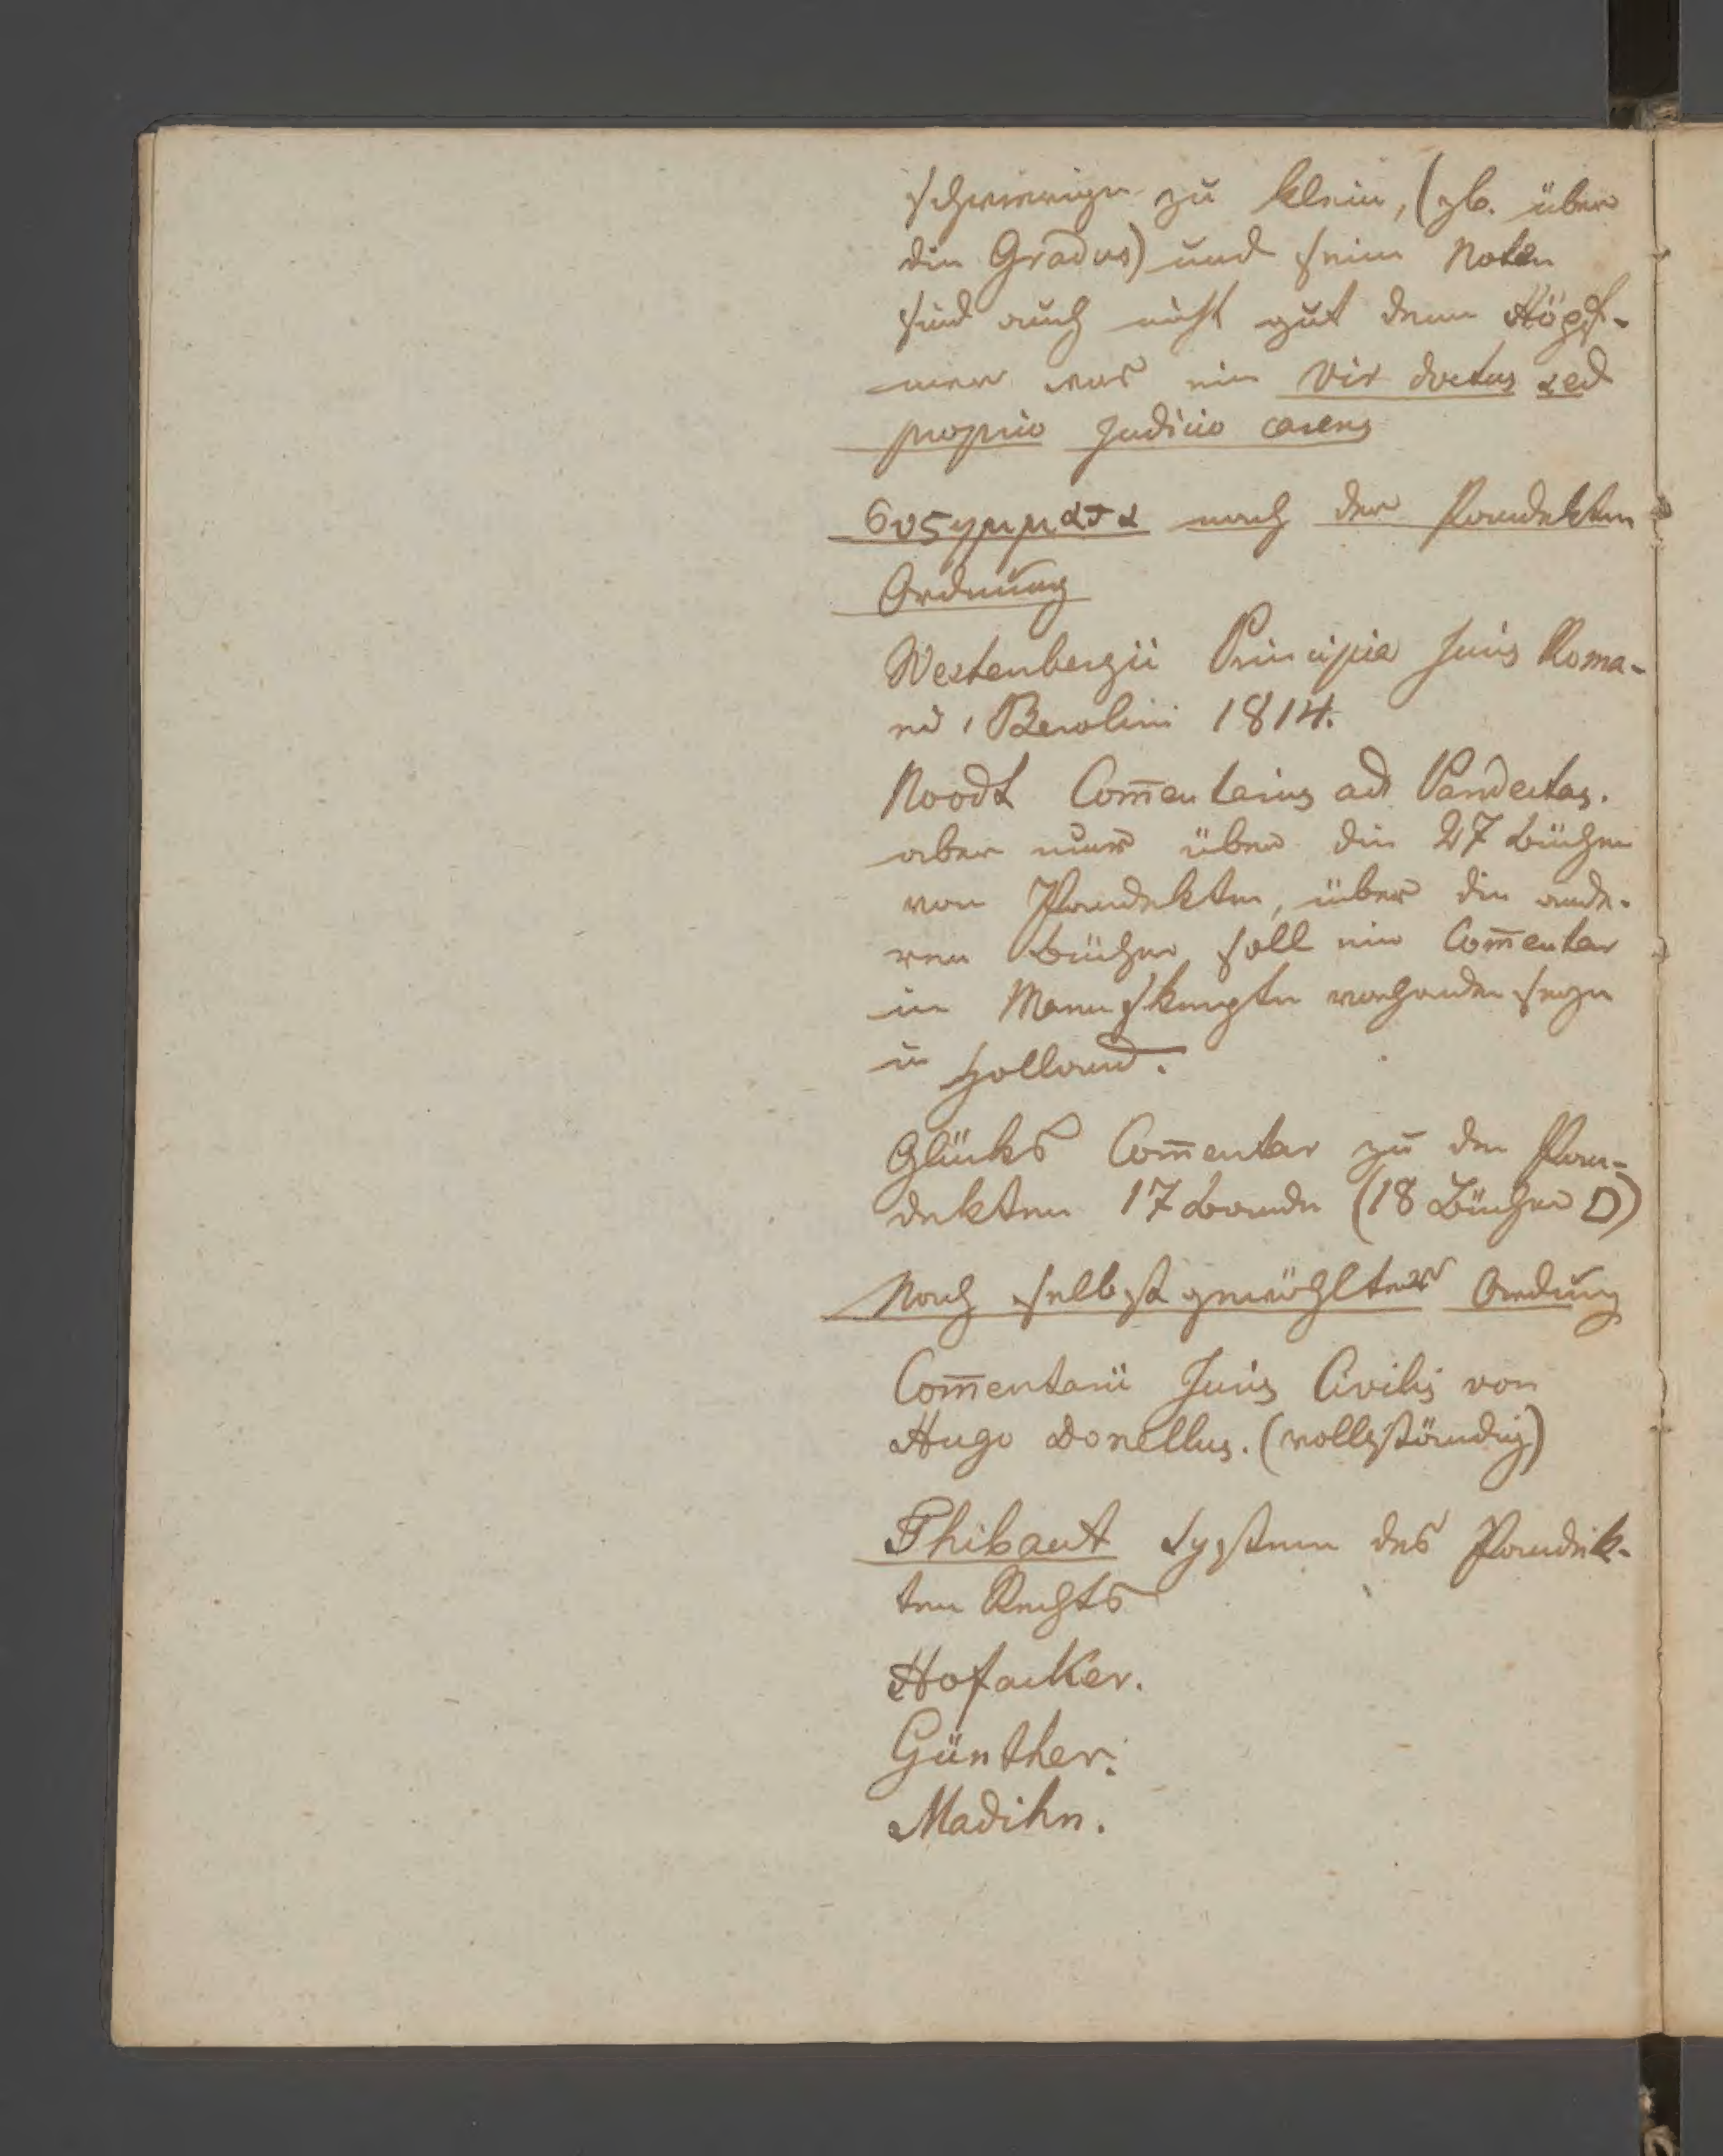 schwierige zu klein, (zb. über
die Gradus) und seine Noten
sind auch nicht gut denn Höpf-
ner war ein vir doctus sed
proprio judicio carens
nach der Pandekten
Ordnung
Westenbergii Principia Juris Roma-
ni, Berolini 1814.
Noodt Com̅entarius ad Pandectas.
aber nur über die 27 Bücher
von Pandekten, über die ande-
ren Bücher soll ein Com̅entar
in Manuskripten vorhanden seyn
in Holland.
Glücks Com̅entar zu den Pan-
dekten 17 Bände (18 Bücher D)
Nach selbst gewählter Ordnung
Com̅entarii Juris Civilis von
Hugo Donellus. (vollständig)
Thibaut System des Pandek-
ten Rechts
Hofacker.
Günther.
Madihn.